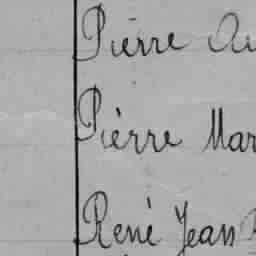 Pierre Au
Pierre Mar
René Jean